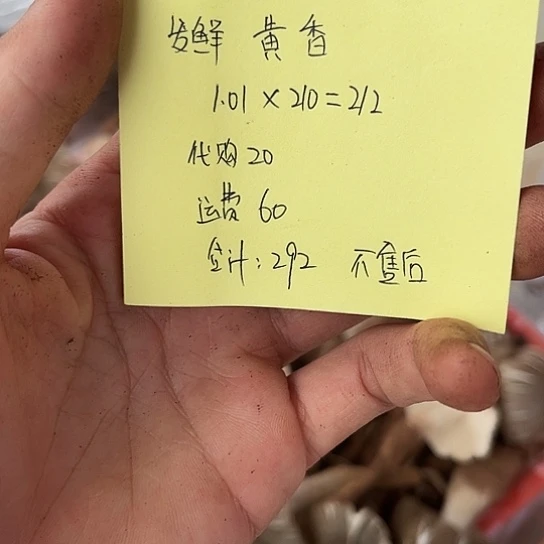 发鲜 黄香
1.01×210=212
代购20
运费 60
合计:292 不售后